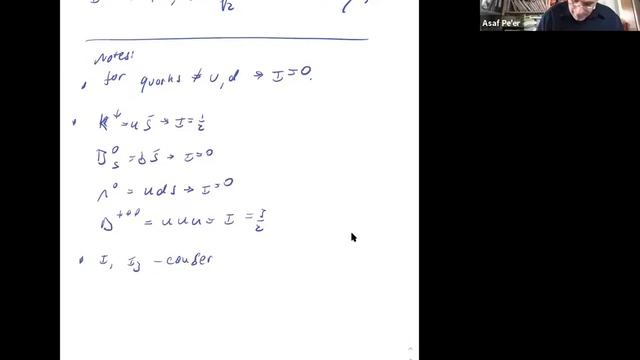 √2
Notes:
• for quarks ≠ u, d → I = 0.
• K⁺ = u s̄ → I = 1/2
s̄ → I = 0
Λ⁰ = u d s → I = 0
= u u u = I =
• I, I₃ - conser
Asaf Pe'er